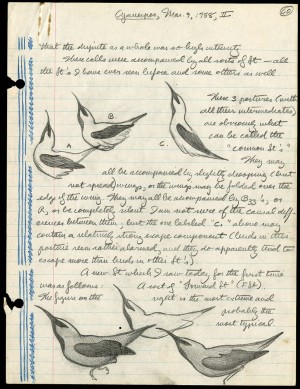 Cyanerpes, Mar. 9, 1958, II
60
that the dispute as a whole was so high intensity.
These calls were accompanied by all sorts of St — all
the St's I have ever seen before and some others as well
These 3 postures (with
all their intermediates)
are obviously what
can be called the
"common St's."
They may
A
B
C.
all be accompanied by slightly drooping (but
not spread) wings, or the wings may be folded over the
edge of the wing. They may all be accompanied by B33's, or
R, or be completely silent. I am not sure of the causal diff-
erences between them, but the one labeled "C." above may
contain a relatively strong escape component (birds in this
posture seem rather alarmed, and they do apparently tend to
escape more than birds in other St's)
A new St which I saw today, for the first time
was as follows: A sort of "Forward St" (FSt)
The figure on the right is the most extreme and
probably the
most typical.